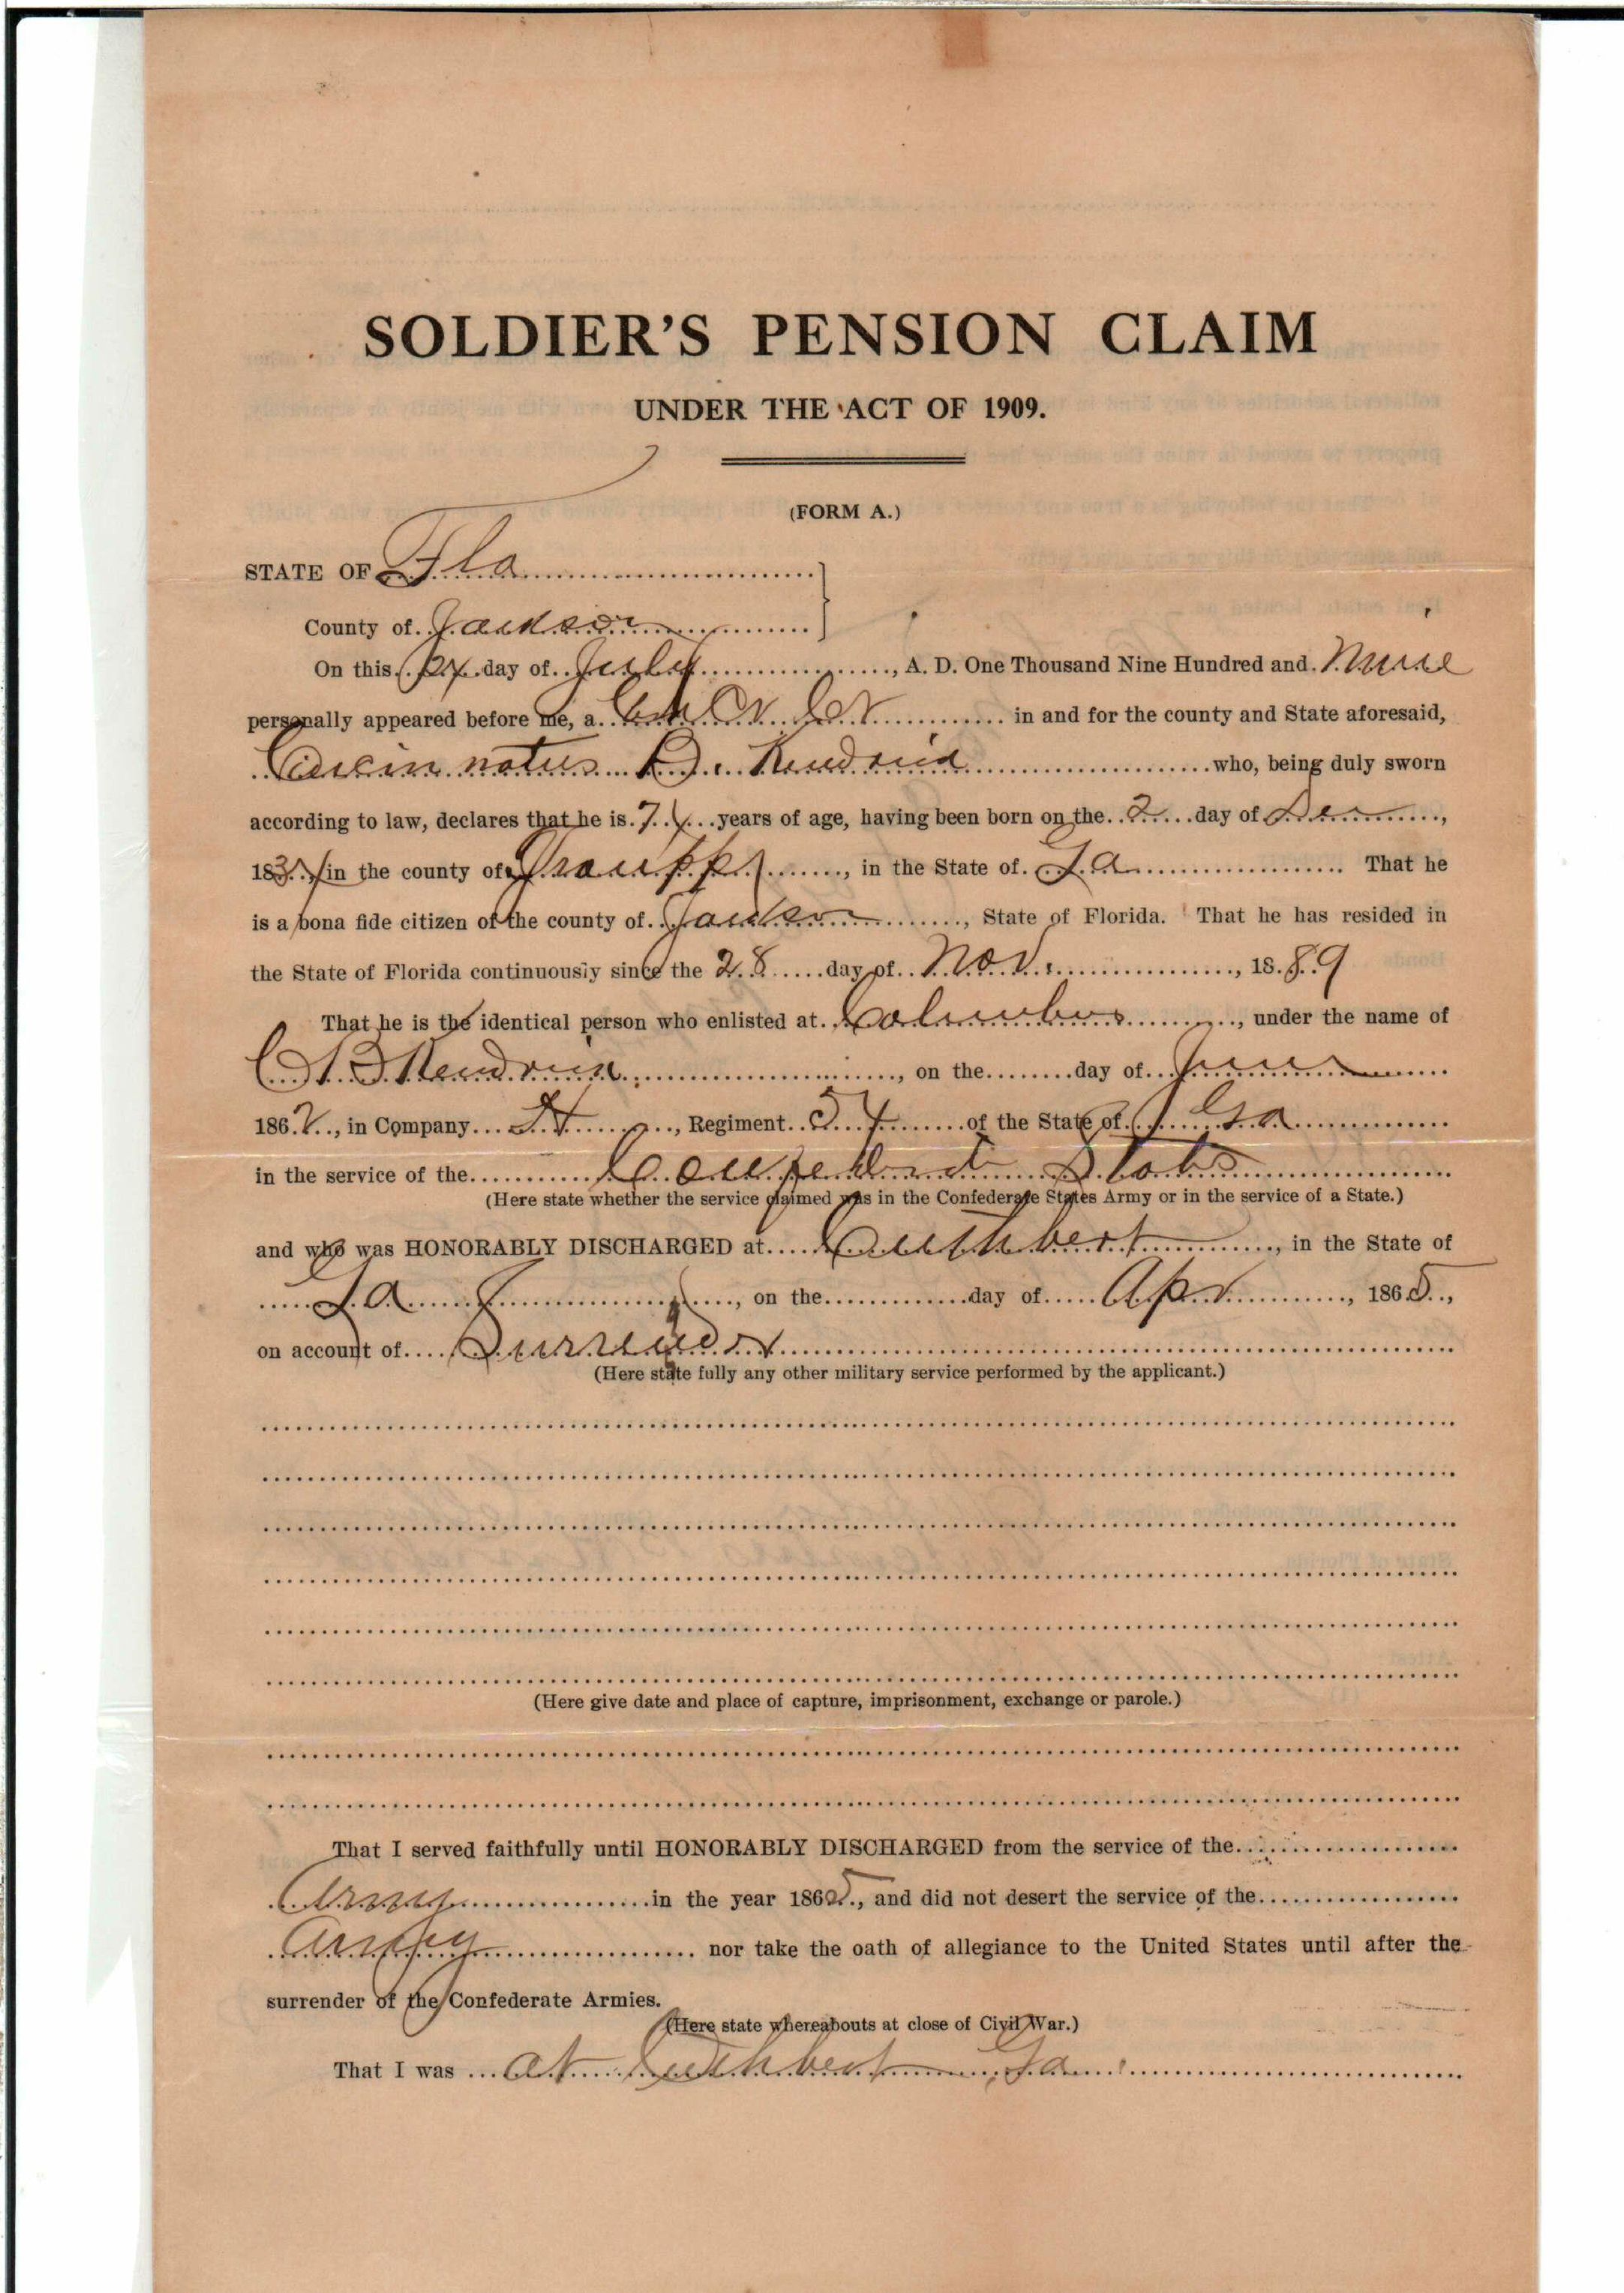 SOLDIER'S PENSION CLAIM
UNDER THE ACT OF 1909.
(FORM A.)
STATE OF Fla
County of Jackson
On this 24 day of July, A. D. One Thousand Nine Hundred and Nine
personally appeared before me, a in and for the county and State aforesaid,
Cincinnatus B. Kendrick who, being duly sworn
according to law, declares that he is 74 years of age, having been born on the 2 day of Dec,
183 in the county of Troupp, in the State of Ga That he
is a bona fide citizen of the county of Jackson, State of Florida. That he has resided in
the State of Florida continuously since the 28 day of Nov., 1889
That he is the identical person who enlisted at Columbus, under the name of
C B Kendrick, on the day of June
1862, in Company H, Regiment 54 of the State of Ga
in the service of the Confederate States
(Here state whether the service claimed was in the Confederate States Army or in the service of a State.)
and who was HONORABLY DISCHARGED at Cuthbert, in the State of
Ga, on the day of Apr, 1865,
on account of Surrender
(Here state fully any other military service performed by the applicant.)
(Here give date and place of capture, imprisonment, exchange or parole.)
That I served faithfully until HONORABLY DISCHARGED from the service of the
Army in the year 1865, and did not desert the service of the
Army nor take the oath of allegiance to the United States until after the
surrender of the Confederate Armies.
(Here state whereabouts at close of Civil War.)
That I was at Cuthbert Ga